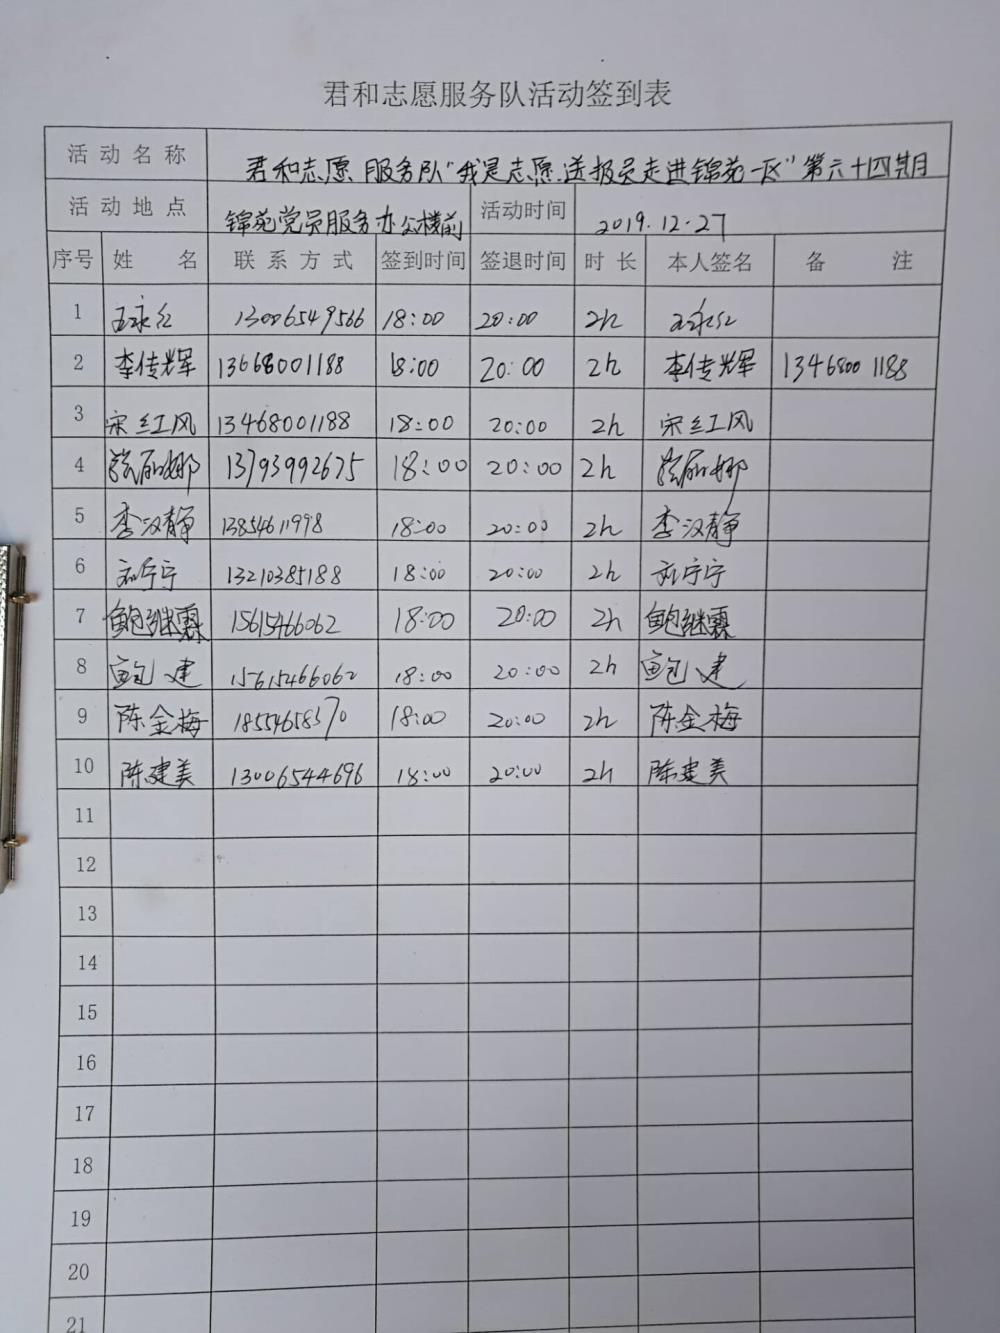 君和志愿服务队活动签到表
活动名称 君和志愿服务队"我是志愿送报员走进锦苑一区"第六十四期
活动地点 锦苑党员服务办公楼前 活动时间 2019.12.27
序号 姓名 联系方式 签到时间 签退时间 时长 本人签名 备注
1 王永红 13006549566 18:00 20:00 2h 王永红
2 李传辉 13668001188 18:00 20:00 2h 李传辉 13468001188
3 宋红风 13468001188 18:00 20:00 2h 宋红风
4 张丽娜 13793992675 18:00 20:00 2h 张丽娜
5 李汉静 13854611998 18:00 20:00 2h 李汉静
6 刘宁宁 13210385188 18:00 20:00 2h 刘宁宁
7 鲍继霖 15615466062 18:00 20:00 2h 鲍继霖
8 鲍建 15615466062 18:00 20:00 2h 鲍建
9 陈金梅 18554658370 18:00 20:00 2h 陈金梅
10 陈建美 13006544696 18:00 20:00 2h 陈建美
11
12
13
14
15
16
17
18
19
20
21